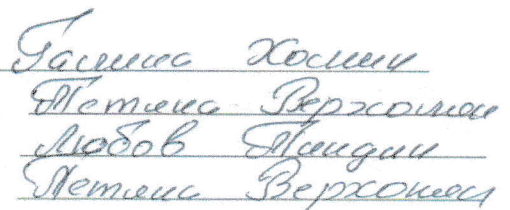 Галина Хомин
Тетяна Верхомей
Любов Пиндик
Тетяна Верхомей